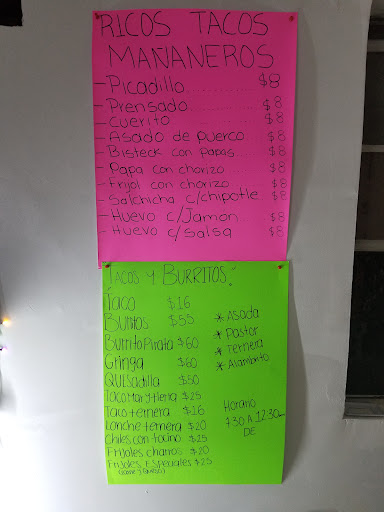 RICOS TACOS
MAÑANEROS
- Picadillo ........... $8
- Prensado ........... $8
- Cuerito ........... $8
- Asado de puerco $8
- Bisteck con Papas $8
- Papa con chorizo $8
- Frijol con chorizo $8
- Salchicha c/chipotle $8
- Huevo c/Jamón $8
- Huevo c/Salsa $8
TACOS Y BURRITOS:
Taco $16
Burritos $55
Burrito Pirata $60
Gringa $60
QUESadilla $50
Taco Mar y tierra $25
Taco ternera $26
Lonche ternera $20
Chiles con tocino $25
Frijoles charros $20
Frijoles Especiales $25
* Asada
* Pastor
* Ternera
* Alambrito
Horario
7:30 A 12:30
DE